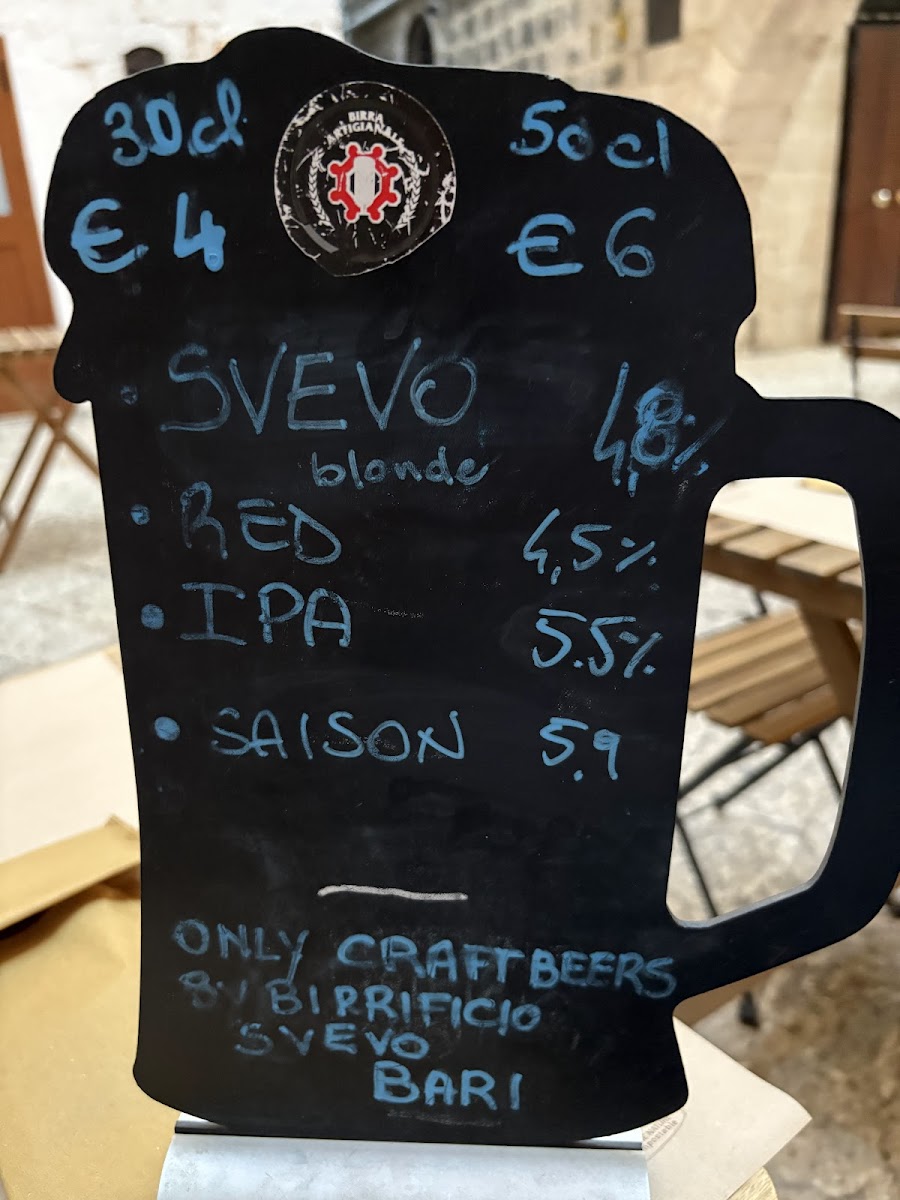 30cl
50cl
BIRRA
ARTIGIANALE
€ 4
€ 6
• SVEVO 4,8%
blonde
• RED 4,5%
• IPA 5.5%
• SAISON 5.9
ONLY CRAFT BEERS
BY BIRRIFICIO
SVEVO
BARI